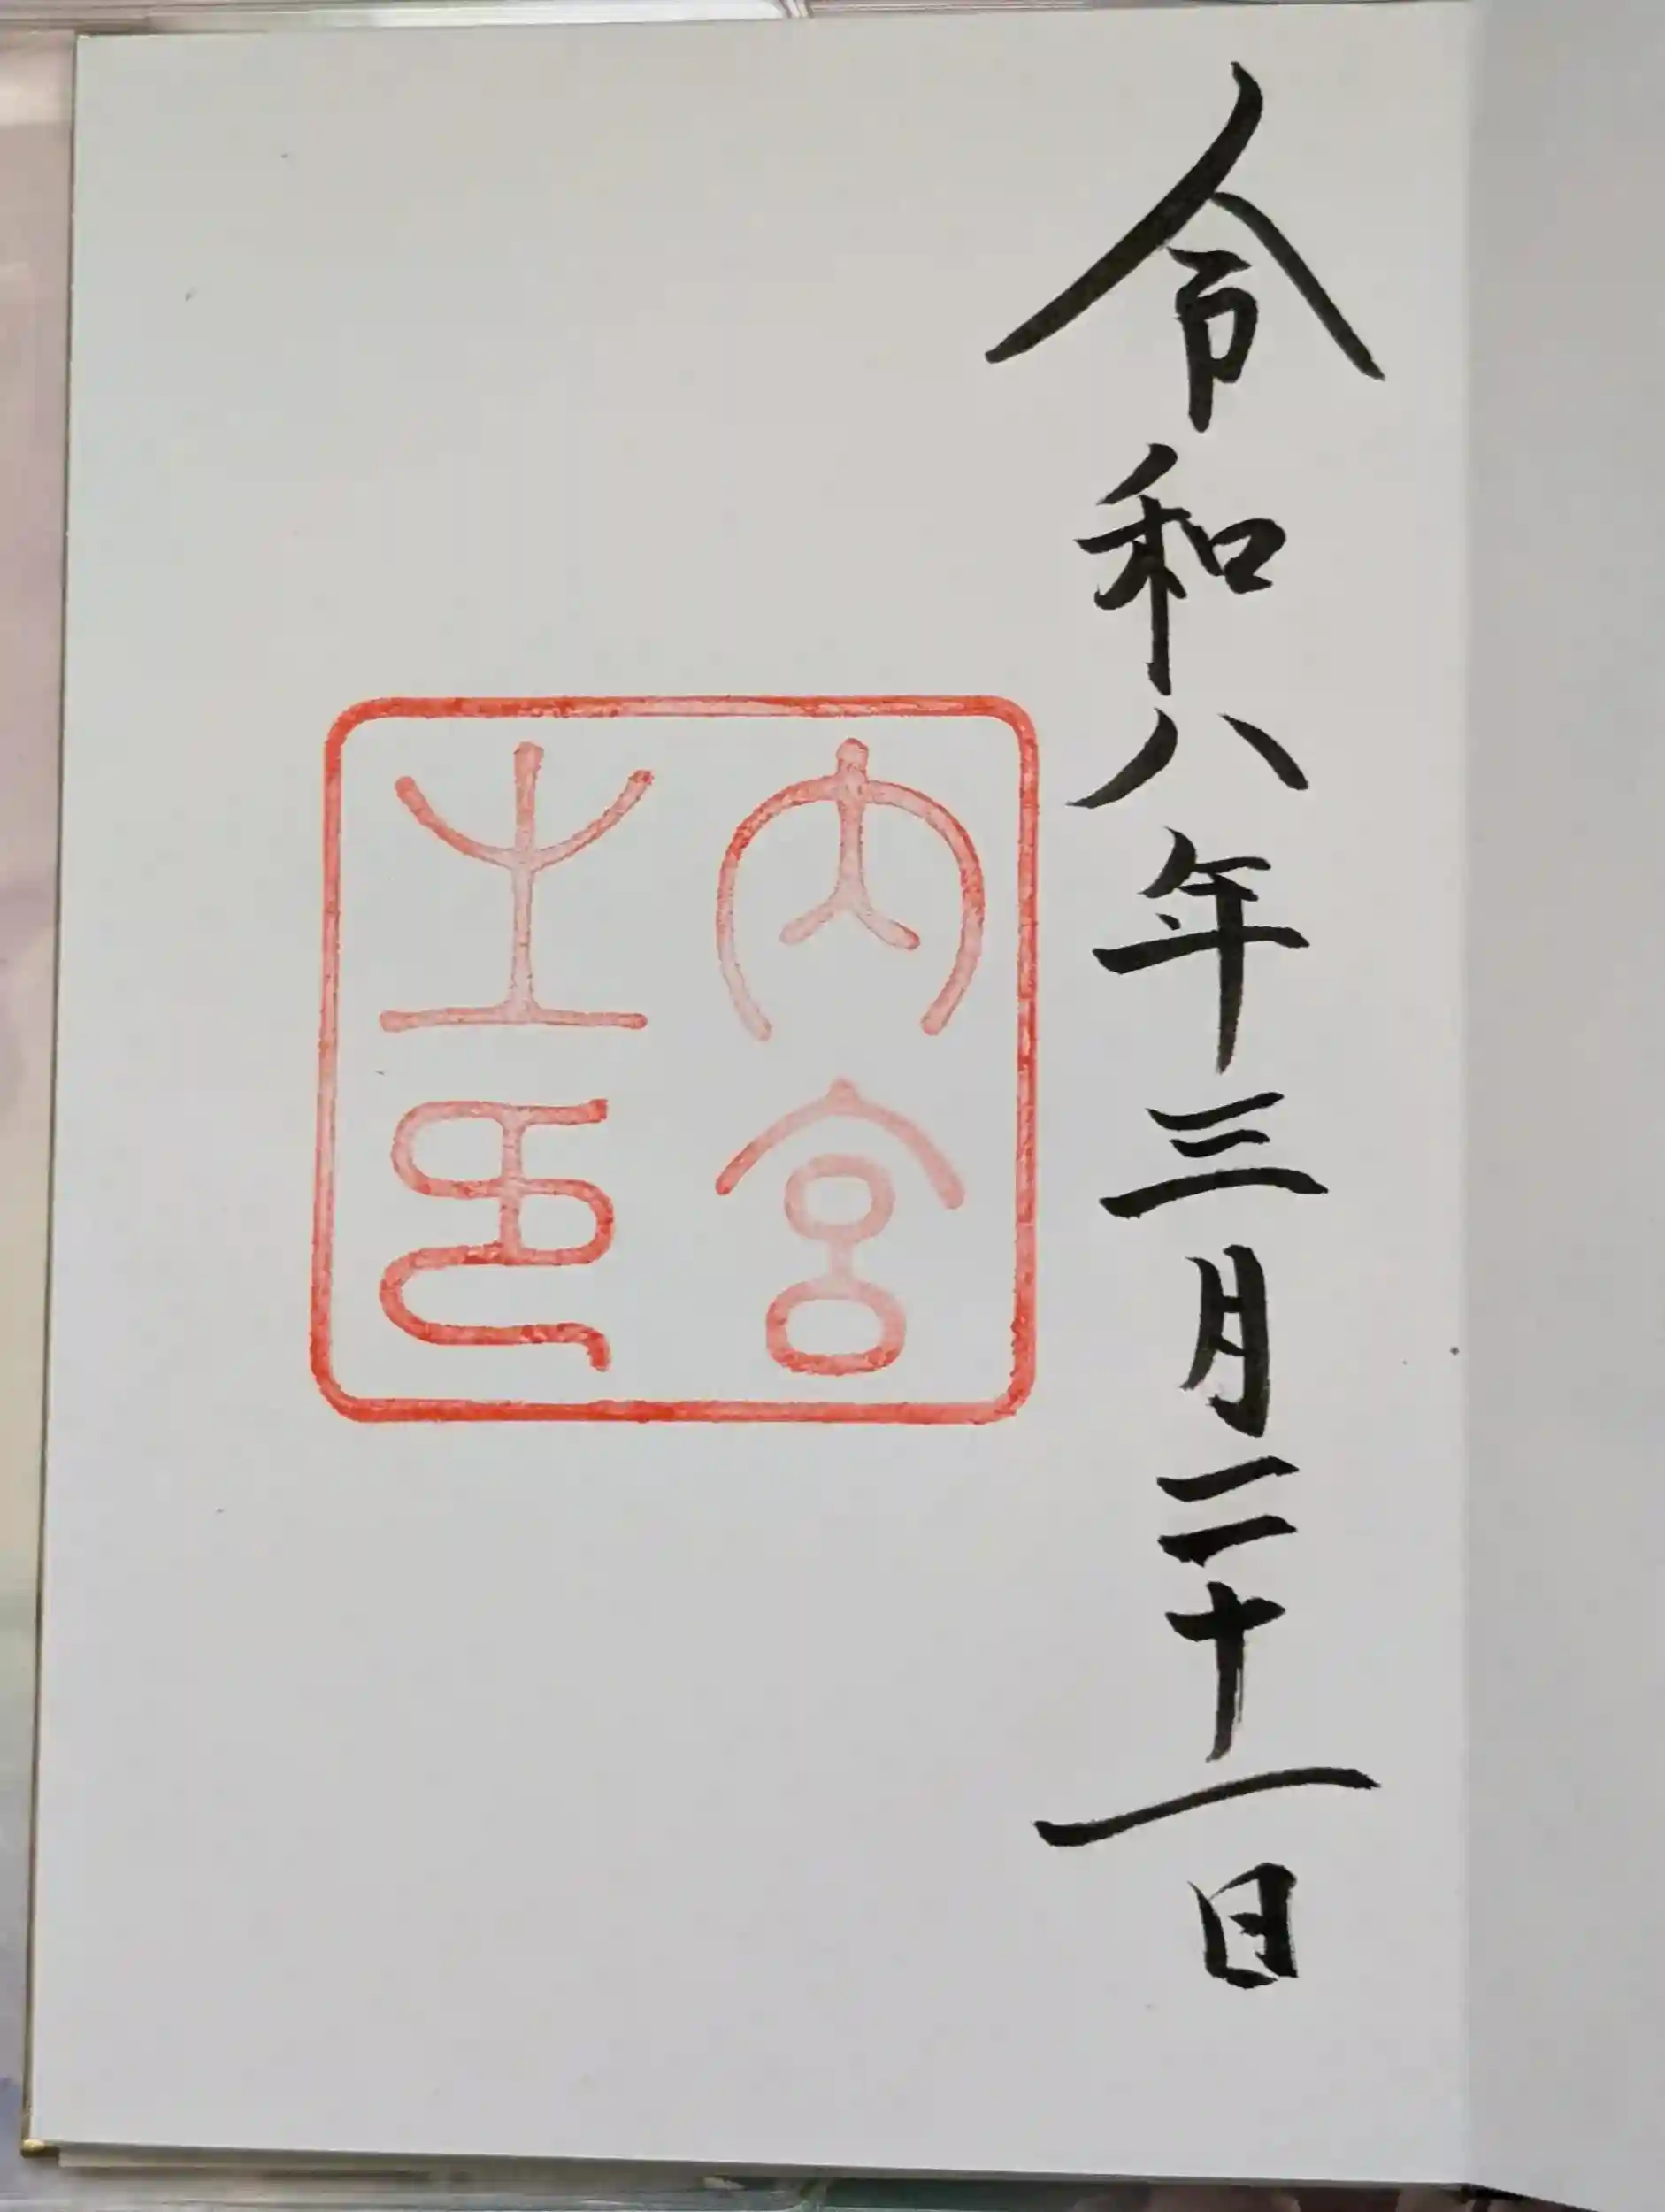 令和八年三月二十一日
内宮
之印